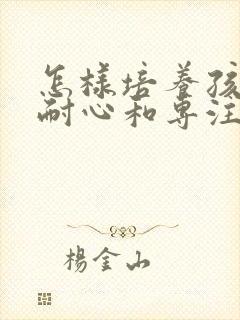 怎樣培養孩
耐心和專注
楊金山